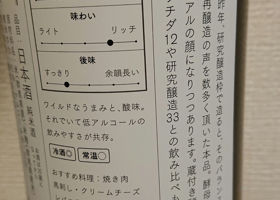 昨年、研究醸造枠で造ると、そのバランス
再醸造の声を数多く頂いた本品。酵母
アルの顔になりつつあります。蔵付き
チダ12や研究醸造33との飲み比べも
味わい
ライト
リッチ
後味
すっきり
余韻長い
ワイルドなうまみと、酸味。
それでいて低アルコールの
飲みやすさが共存。
冷酒◎
常温○
おすすめ料理：焼き肉
馬刺し・クリームチーズ
品目 日本酒 純米酒